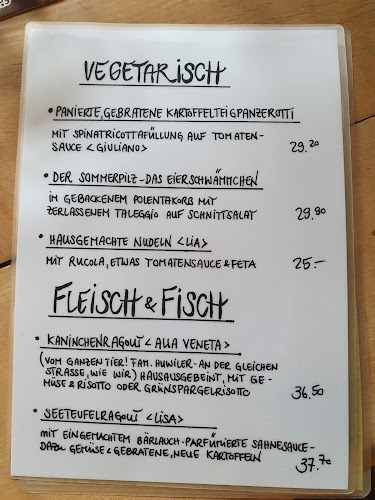 VEGETARISCH
• PANIERTE, GEBRATENE KARTOFFELTEIGPANZEROTTI
MIT SPINATRICOTTAFÜLLUNG AUF TOMATEN-
SAUCE <GIULIANO> 29.20
• DER SOMMERPILZ - DAS EIERSCHWÄMMCHEN
IM GEBACKENEM POLENTAKORB MIT
ZERLASSENEM TALEGGIO AUF SCHNITTSALAT 29.90
• HAUSGEMACHTE NUDELN <LIA>
MIT RUCOLA, ETWAS TOMATENSAUCE & FETA 25.–
FLEISCH & FISCH
• KANINCHENRAGOUT <ALLA VENETA>
(VOM GANZEN TIER! FAM. HUWILER - AN DER GLEICHEN
STRASSE, WIE WIR) HAUSAUSGEBEINT, MIT GE-
MÜSE & RISOTTO ODER GRÜNSPARGELRISOTTO 36.50
• SEETEUFELRAGOUT <LISA>
MIT EINGEMACHTEM BÄRLAUCH - PARFÜMIERTE SAHNESAUCE -
DAZU GEMÜSE & GEBRATENE, NEUE KARTOFFELN 37.70